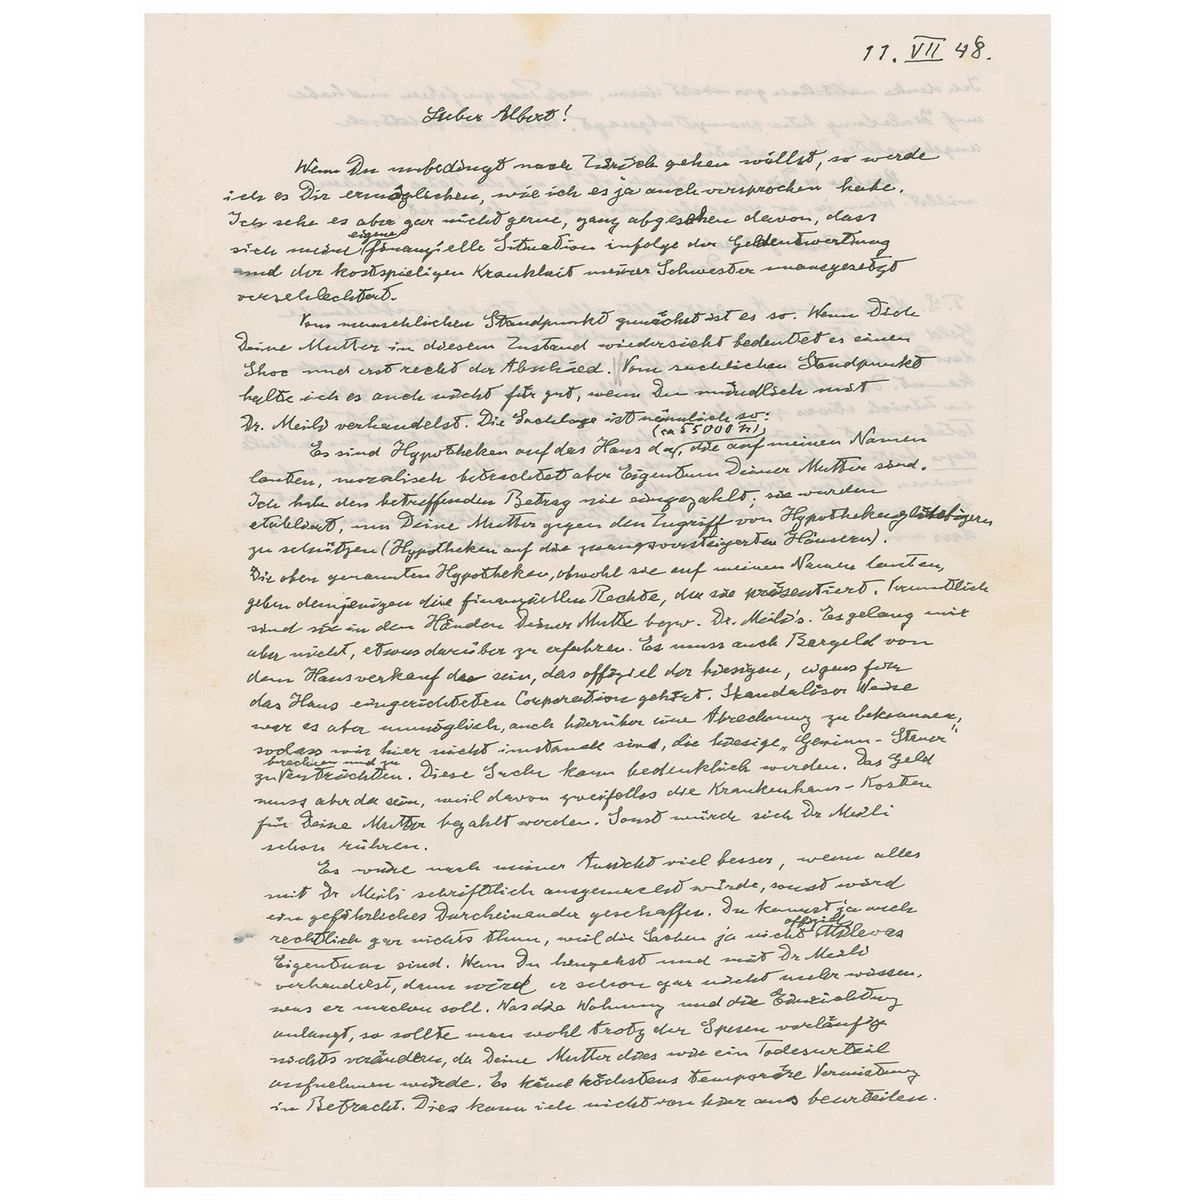 11. VII 48.
Lieber Albert!
Wenn Du unbedingt nach Zürich gehen willst, so werde
ich es Dir ermöglichen, wie ich es ja auch versprochen habe.
Ich sehe es aber gar nicht gerne, ganz abgesehen davon, dass
sich meine eigene finanzielle Situation infolge der Geldentwertung
und der kostspieligen Krankheit meiner Schwester unausgesetzt
verschlechtert.
Vom menschlichen Standpunkt zunächst ist es so. Wenn Dich
Deine Mutter in diesem Zustand wiedersieht bedeutet es einen
Shoc und erst recht der Abschied. Vom sachlichen Standpunkt
halte ich es auch nicht für gut, wenn Du mündlich mit
Dr. Meili verhandelst. Die Sachlage ist nämlich so:
Es sind Hypotheken auf das Haus da (ca 55000 Fr), die auf meinen Namen
lauten, moralisch betrachtet aber Eigentum Deiner Mutter sind.
Ich habe den betreffenden Betrag nie eingezahlt; sie wurden
etabliert, um Deine Mutter gegen den Zugriff von Hypothekengläubigern
zu schützen (Hypotheken auf die zwangsversteigerten Häusern).
Die oben genannten Hypotheken, obwohl sie auf meinen Namen lauten,
geben demjenigen die finanziellen Rechte, der sie präsentiert. Vermutlich
sind sie in den Händen Deiner Mutter bezw. Dr. Meili's. Es gelang mir
aber nicht, etwas darüber zu erfahren. Es muss auch Bargeld von
dem Hausverkauf da sein, das offiziel der hiesigen, eigens für
das Haus eingerichteten Corporation gehört. Skandalöser Weise
war es aber unmöglich, auch hierüber eine Abrechnung zu bekommen,
sodass wir hier nicht imstande sind, die hiesige „Gewinn-Steuer"
zu berechnen und zu entrichten. Diese Sache kann bedenklich werden. Das Geld
muss aber da sein, weil davon zweifellos die Krankenhaus-Kosten
für Deine Mutter bezahlt werden. Sonst würde sich Dr Meili
schon rühren.
Es wäre nach meiner Ansicht viel besser, wenn alles
mit Dr Meili schriftlich ausgemacht würde, sonst wird
ein gefährliches Durcheinander geschaffen. Du kannst ja auch
rechtlich gar nichts thun, weil die Sachen ja nicht offiziel Milevas
Eigentum sind. Wenn Du hingehst und mit Dr Meili
verhandelst, dann wird er schon gar nicht mehr wissen,
was er machen soll. Was die Wohnung und die Einrichtung
anlangt, so sollte man wohl trotz der Spesen vorläufig
nichts verändern, da Deine Mutter dies wie ein Todesurteil
aufnehmen würde. Es käme höchstens temporäre Vermietung
in Betracht. Dies kann ich nicht von hier aus beurteilen.